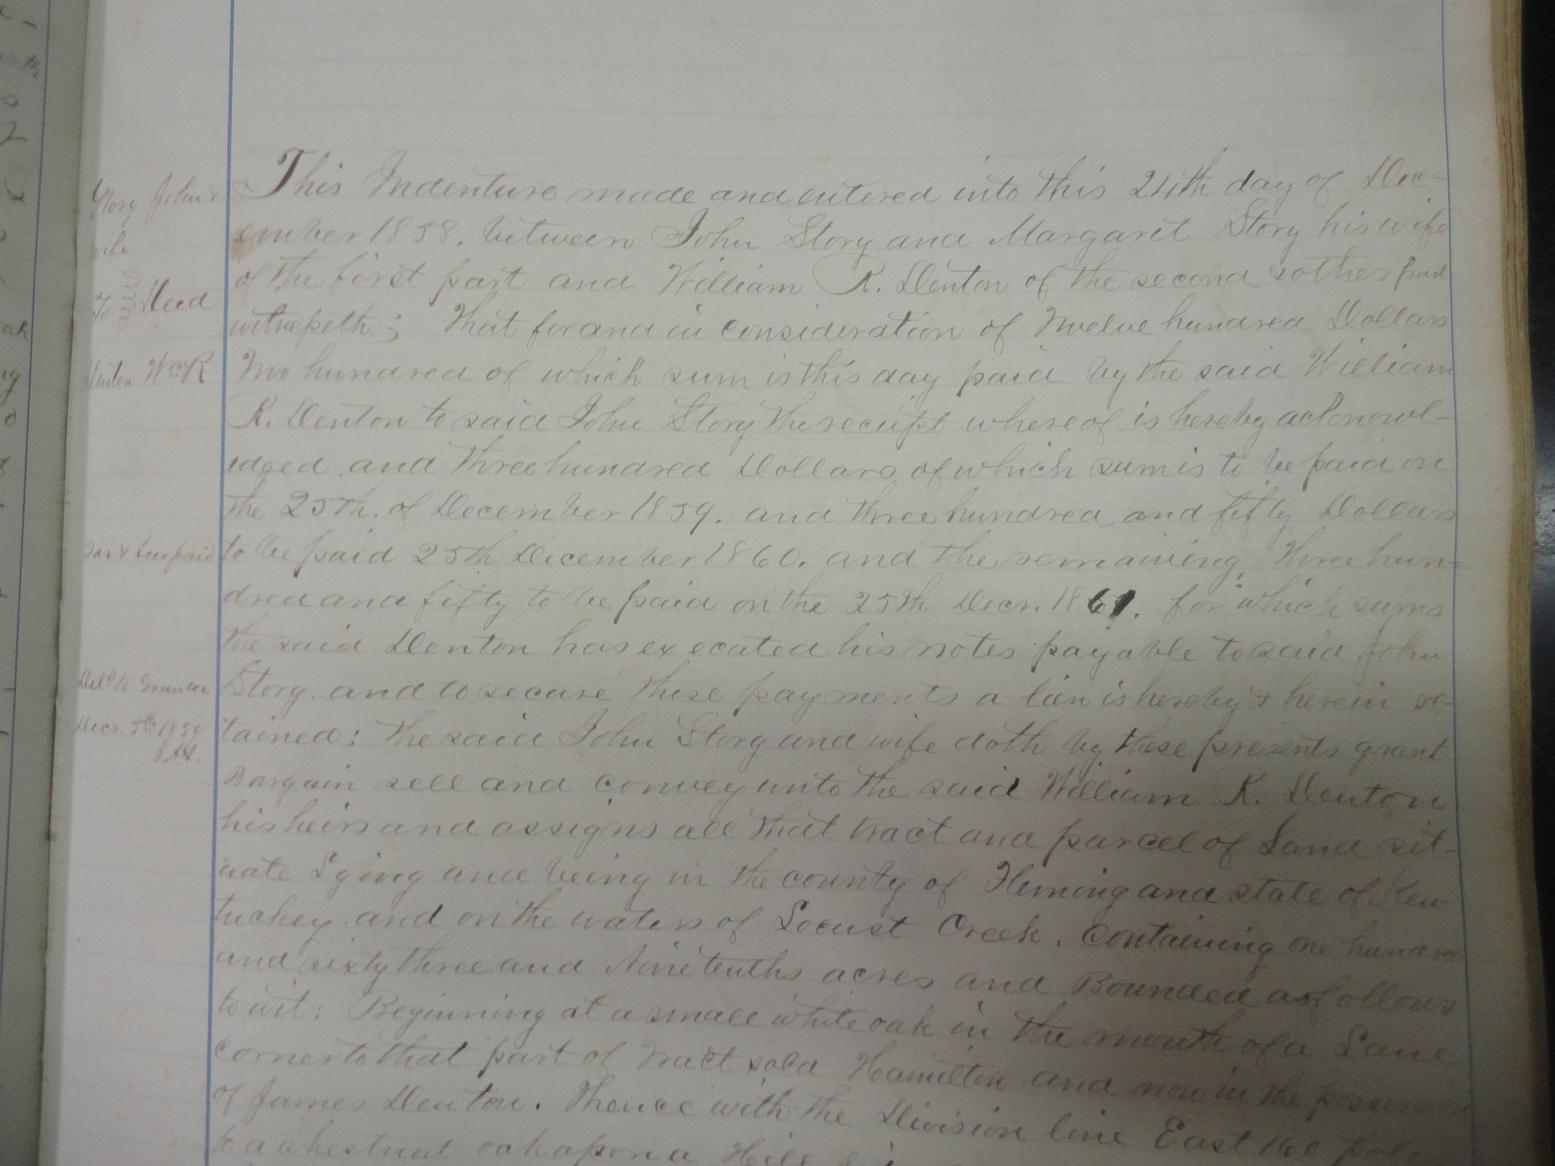 Story John &
wife
To Deed
Denton Wm R
Tax & fee paid
Deld to Grantee
Decr. 5th 1859
This Indenture made and entered into this 24th day of Dec-
ember 1858. between John Story and Margaret Story his wife
of the first part and William R. Denton of the second & other part
witnesseth; That for and in consideration of Twelve hundred Dollars
Two hundred of which sum is this day paid by the said William
R. Denton to said John Story the receipt where of is hereby acknowl-
edged. and three hundred Dollars of which sum is to be paid on
the 25th. of December 1859. and three hundred and fifty Dollars
to be paid 25th December 1860. and the remaining Three hun-
dred and fifty to be paid on the 25th Decr. 1861. for which sums
the said Denton has executed his notes payable to said John
Story. and to secure these payments a lien is hereby & herein re-
tained; the said John Story and wife doth by these presents grant
Bargain sell and convey unto the said William R. Denton
his heirs and assigns all that tract and parcel of Land sit-
uate Lying and being in the county of Fleming and state of Ken
tuckey. and on the waters of Locust Creek. containing one hundred
and sixty three and Nine tenths acres and Bounded as follows
to wit: Beginning at a small white oak in the mouth of a Lane
corner to that part of Tract sold Hamilton and now in the possession
of James Denton. Thence with the Division line East 160 pole
to a chestnut oak upon a Hill